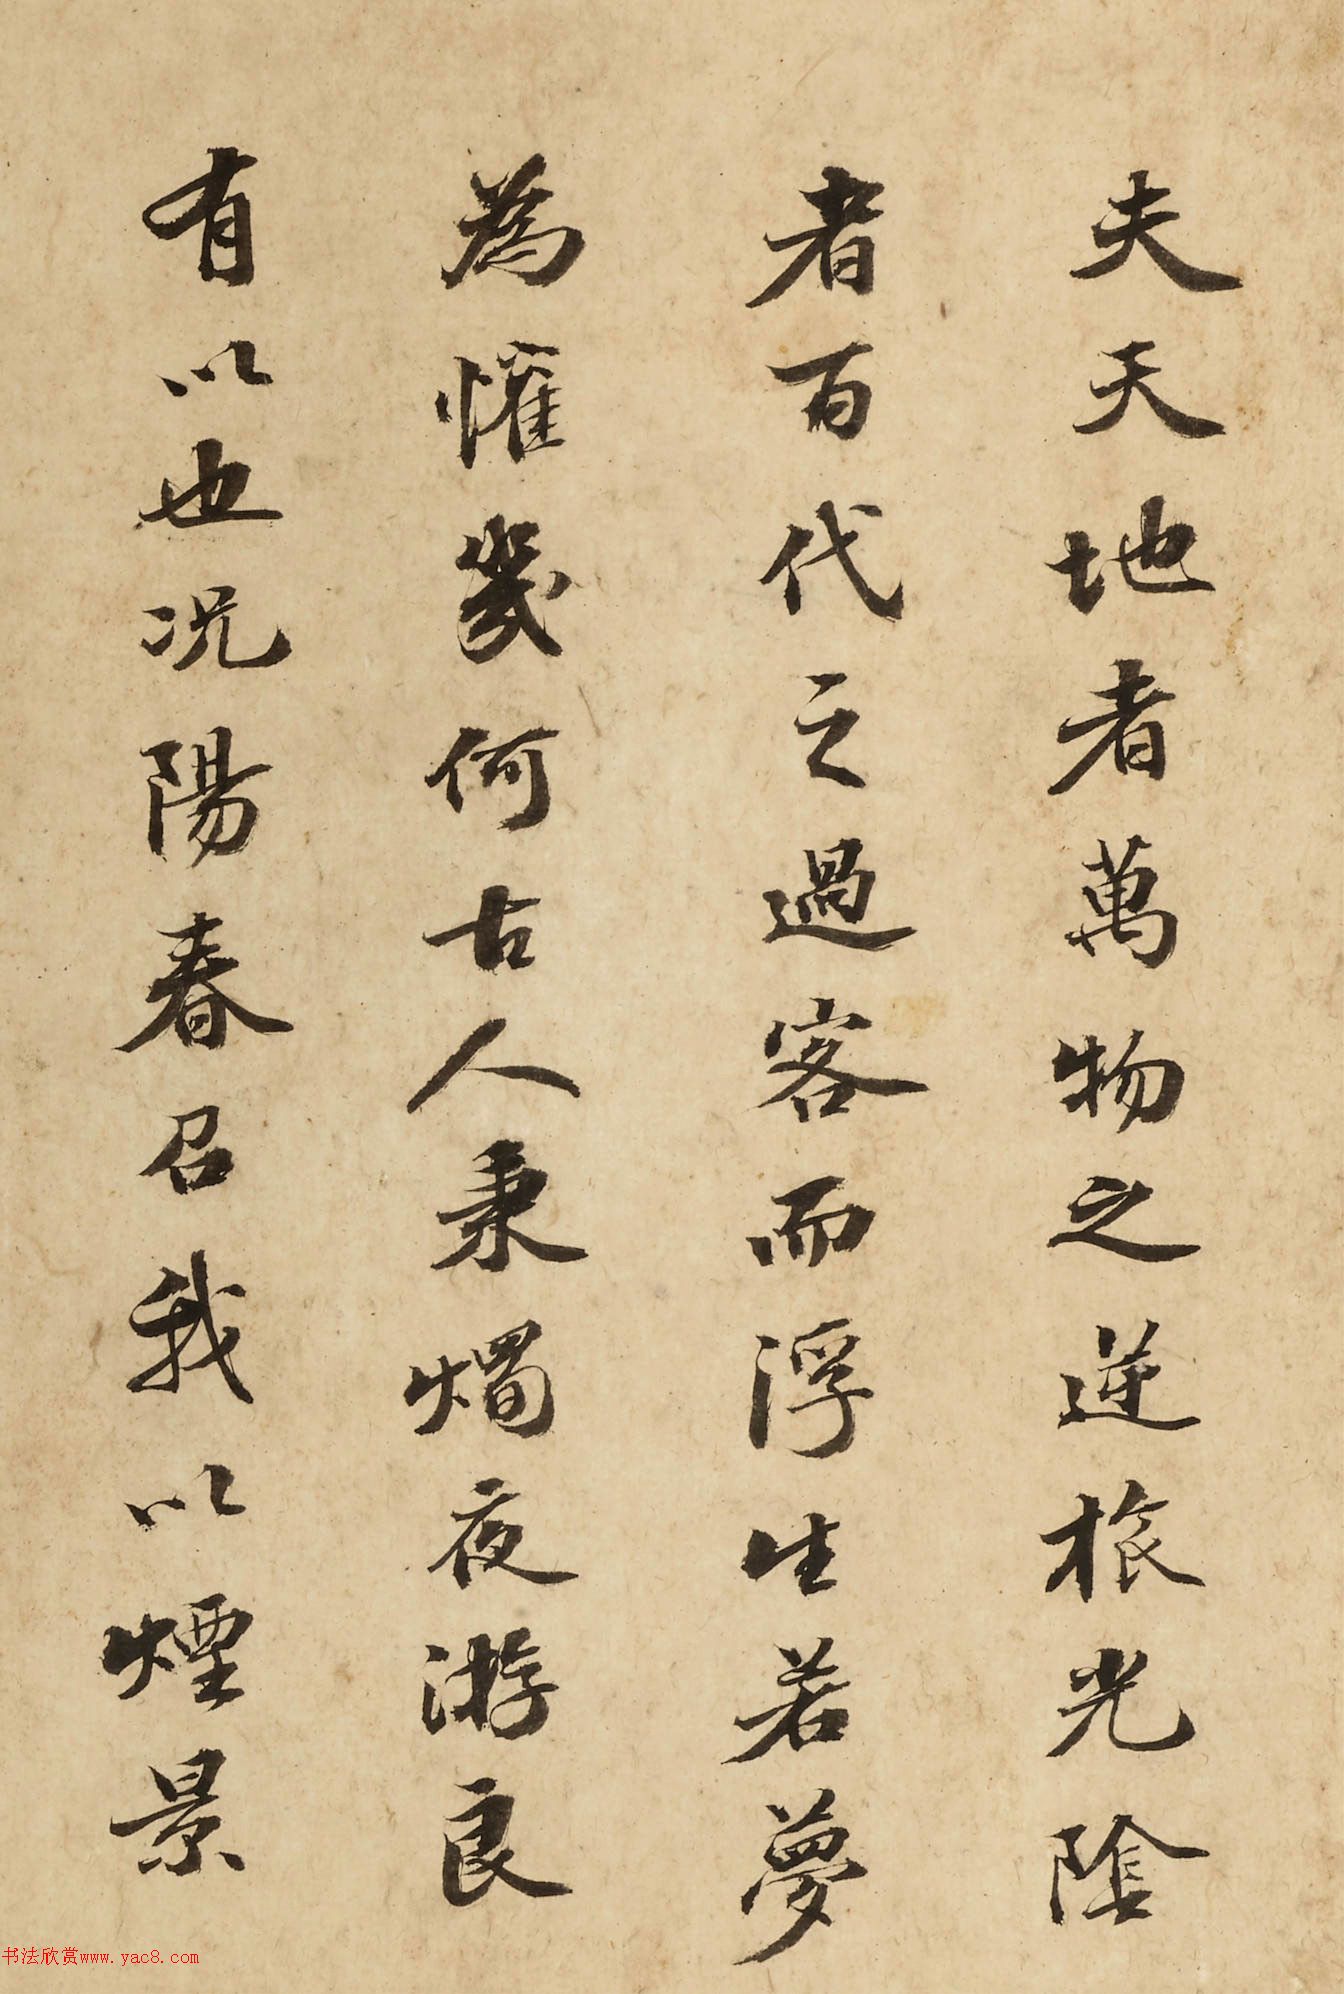 夫天地者萬物之逆旅光陰
者百代之過客而浮生若夢
為懽幾何古人秉燭夜游良
有以也况陽春召我以煙景
书法欣赏www.yac8.com